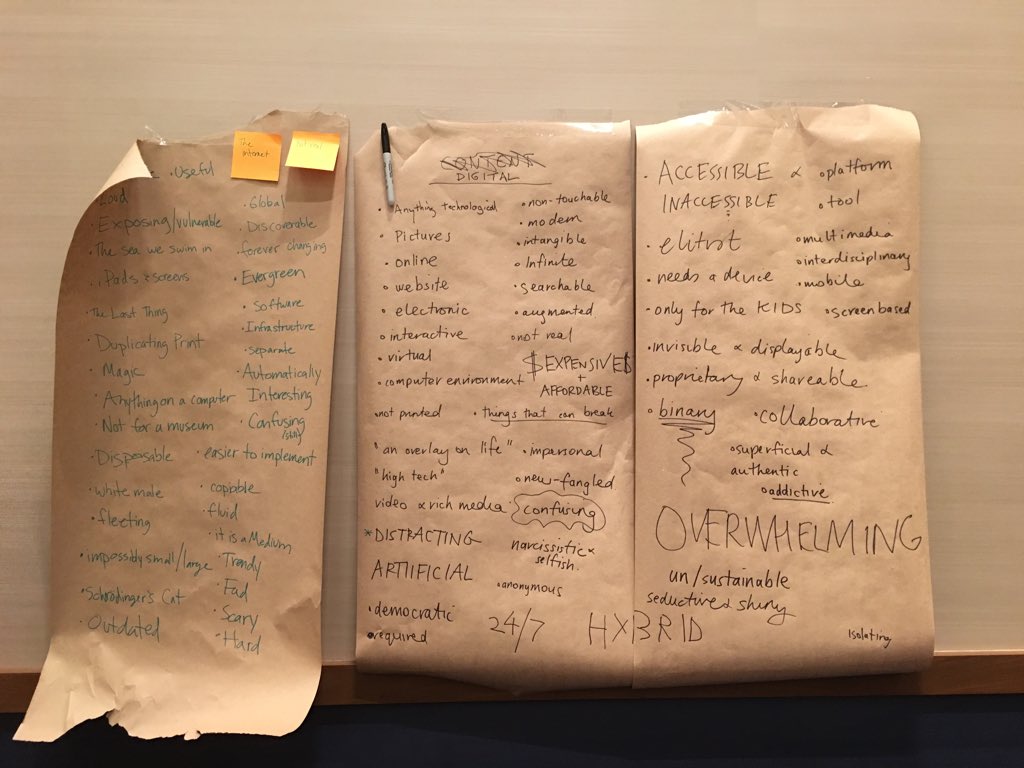 The internet
• Useful
Loud
• Exposing/vulnerable
• The sea we swim in
• iPads & screens
• The Last Thing
• Duplicating Print
• Magic
• Anything on a computer
• Not for a museum
• Dispensable
• white male
• fleeting
• impossibly small/large
• Schrodinger's Cat
• Outdated
• Global
• Discoverable
• forever changing
• Evergreen
• Software
• Infrastructure
• separate
• Automatically Interesting
• Confusing
• easier to implement
• copyable
• fluid
• it is a Medium
• Trendy
• Fad
• Scary
• Hard
CONTENT
DIGITAL
• Anything technological
• Pictures
• online
• website
• electronic
• interactive
• virtual
• computer environment
• not printed
"an overlay on life"
"high tech"
video & rich media
* DISTRACTING
ARTIIFICIAL
• democratic
• required
• non-touchable
• modern
• intangible
• Infinite
• searchable
• augmented
• not real
$EXPENSIVE$
+
AFFORDABLE
• things that can break
• impersonal
• new-fangled
confusing
narcissistic &
selfish.
• anonymous
24/7
HYBRID
• ACCESSIBLE &
INACCESSIBLE
• elitist
• needs a device
• only for the KIDS
• invisible & displayable
• proprietary & shareable
• binary
• platform
• tool
• multimedia
• interdisciplinary
• mobile
• screen based
• collaborative
• superficial &
authentic
• addictive
OVERWHELMING
un/sustainable
seductive & shiny
Isolating